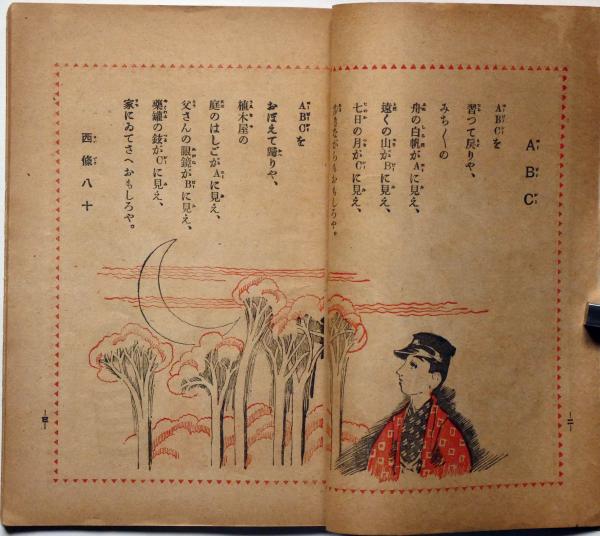 ABC
ABCを
習つて戻りや、
みち〱の
舟の白帆がAに見え、
遠くの山がBに見え、
七日の月がCに見え、
歩きながらもおもしろや。
ABCを
おぼえて踊りや、
植木屋の
庭のはしごがAに見え、
父さんの眼鏡がBに見え、
藥罐の鉉がCに見え、
家にゐてさへおもしろや。
西條八十